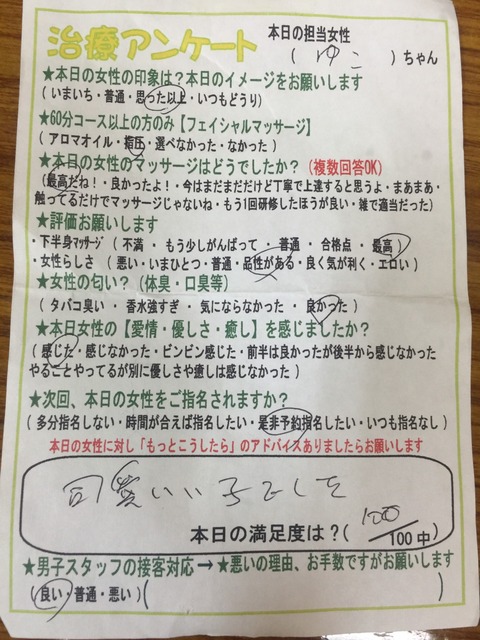 治療アンケート
本日の担当女性
( ゆこ )ちゃん
★本日の女性の印象は？本日のイメージをお願いします
( いまいち・普通・思った以上・いつもどうり)
★60分コース以上の方のみ【フェイシャルマッサージ】
( アロマオイル・指圧・選べなかった・なかった )
★本日の女性のマッサージはどうでしたか？(複数回答OK)
(最高だね！・良かったよ！・今はまだまだだけど丁寧で上達すると思うよ・まあまあ・
触ってるだけでマッサージじゃないね・もう1回研修したほうが良い・雑で適当だった)
★評価お願いします
・下半身ﾏｯｻｰｼﾞ ( 不満 ・ もう少しがんばって ・ 普通 ・ 合格点 ・ 最高 )
・女性らしさ ( 悪い・いまひとつ・普通・品性がある・良く気が利く・エロい )
★女性の匂い？（体臭・口臭等）
( タバコ臭い ・ 香水強すぎ ・ 気にならなかった ・ 良かった )
★本日女性の【愛情・優しさ・癒し】を感じましたか？
( 感じた・感じなかった・ビンビン感じた・前半は良かったが後半から感じなかった
やることやってるが別に優しさや癒しは感じなかった )
★次回、本日の女性をご指名されますか？
( 多分指名しない・時間が合えば指名したい・是非予約指名したい・いつも指名なし )
本日の女性に対し「もっとこうしたら」のアドバイスありましたらお願いします
可愛いい子でした
本日の満足度は？( 100/100中)
★男子スタッフの接客対応→★悪いの理由、お手数ですがお願いします
(良い・普通・悪い)( )